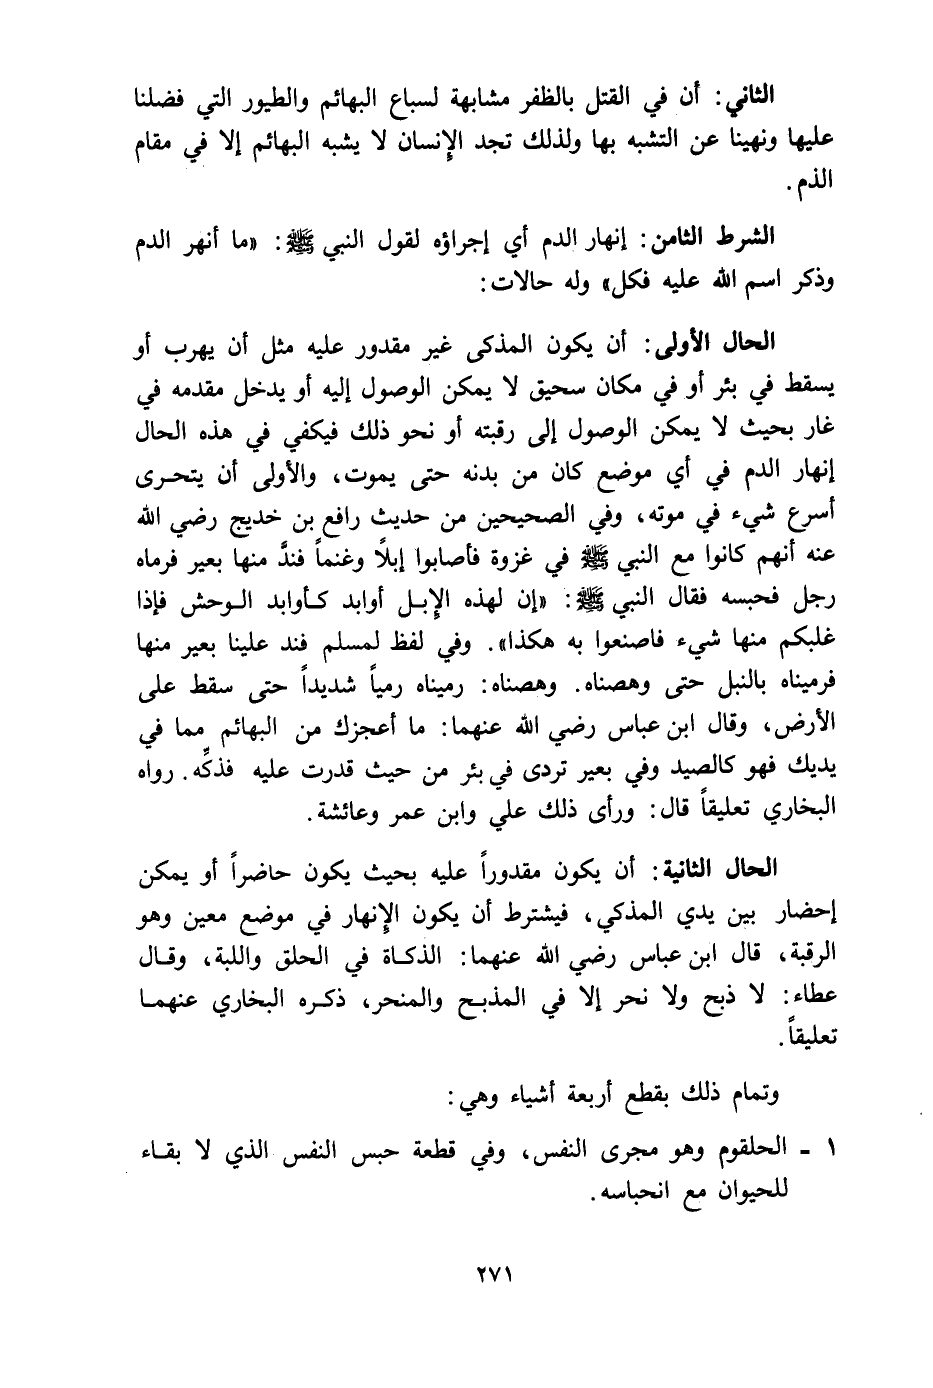 الثاني: أن في القتل بالظفر مشابهة لسباع البهائم والطيور التي فضلنا
عليها ونهينا عن التشبه بها ولذلك تجد الإنسان لا يشبه البهائم إلا في مقام
الذم.
الشرط الثامن: إنهار الدم أي إجراؤه لقول النبي ﷺ: «ما أنهر الدم
وذكر اسم الله عليه فكل» وله حالات:
الحال الأولى: أن يكون المذكى غير مقدور عليه مثل أن يهرب أو
يسقط في بئر أو في مكان سحيق لا يمكن الوصول إليه أو يدخل مقدمه في
غار بحيث لا يمكن الوصول إلى رقبته أو نحو ذلك فيكفي في هذه الحال
إنهار الدم في أي موضع كان من بدنه حتى يموت، والأولى أن يتحرى
أسرع شيء في موته، وفي الصحيحين من حديث رافع بن خديج رضي الله
عنه أنهم كانوا مع النبي ﷺ في غزوة فأصابوا إبلًا وغنماً فندَّ منها بعير فرماه
رجل فحبسه فقال النبي ﷺ: «إن لهذه الإبل أوابد كأوابد الوحش فإذا
غلبكم منها شيء فاصنعوا به هكذا». وفي لفظ لمسلم فند علينا بعير منها
فرميناه بالنبل حتى وهصناه. وهصناه: رميناه رمياً شديداً حتى سقط على
الأرض، وقال ابن عباس رضي الله عنهما: ما أعجزك من البهائم مما في
يديك فهو كالصيد وفي بعير تردى في بئر من حيث قدرت عليه فذكِّه. رواه
البخاري تعليقاً قال: ورأى ذلك علي وابن عمر وعائشة.
الحال الثانية: أن يكون مقدوراً عليه بحيث يكون حاضراً أو يمكن
إحضار بين يدي المذكي، فيشترط أن يكون الإنهار في موضع معين وهو
الرقبة، قال ابن عباس رضي الله عنهما: الذكاة في الحلق واللبة، وقال
عطاء: لا ذبح ولا نحر إلا في المذبح والمنحر، ذكره البخاري عنهما
تعليقاً.
وتمام ذلك بقطع أربعة أشياء وهي:
١ - الحلقوم وهو مجرى النفس، وفي قطعة حبس النفس الذي لا بقاء
للحيوان مع انحباسه.
٢٧١